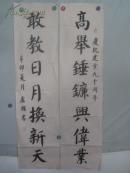 慶祝建黨九十周年
高舉錘鐮興偉業
敢教日月換新天
辛卯夏月